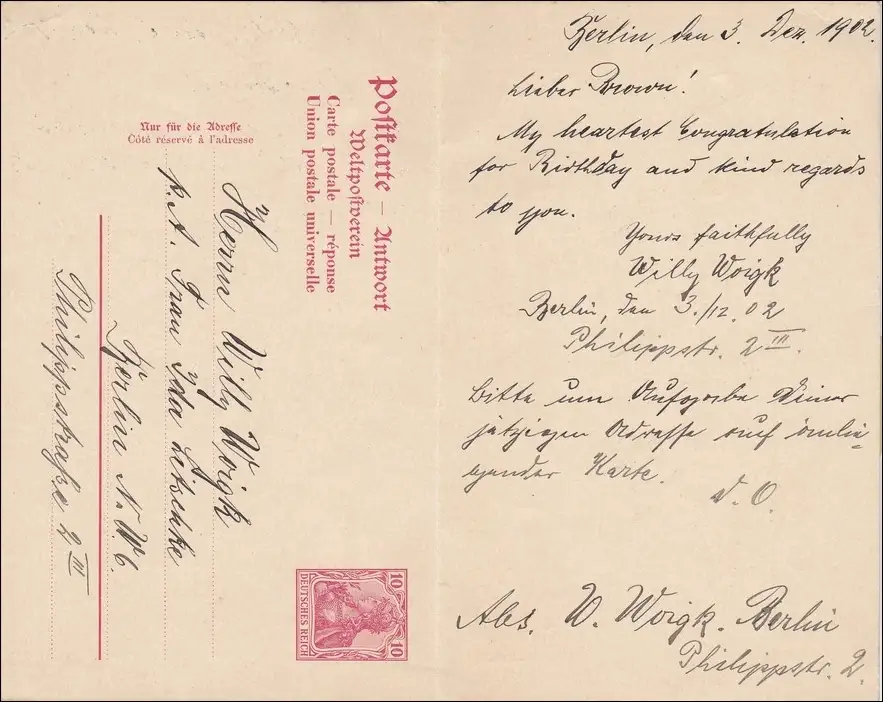 Postkarte – Antwort
Weltpostverein
Carte postale – réponse
Union postale universelle
Nur für die Adresse
Côté réservé à l'adresse
Herrn Willy Woigk
p. A. Frau Ida
Berlin N.W. 6.
Philippstraße 2 III
10 10
DEUTSCHES REICH
Berlin, den 3. Dez. 1902.
Lieber Brown!
My heartest Congratulation
for Birthday and kind regards
to you.
Yours faithfully
Willy Woigk
Berlin, den 3./12.02
Philippstr. 2 III.
Bitte um Aufgabe Deiner
jetzigen Adresse auf
Karte.
D. O.
Abs. W. Woigk. Berlin
Philippstr. 2.